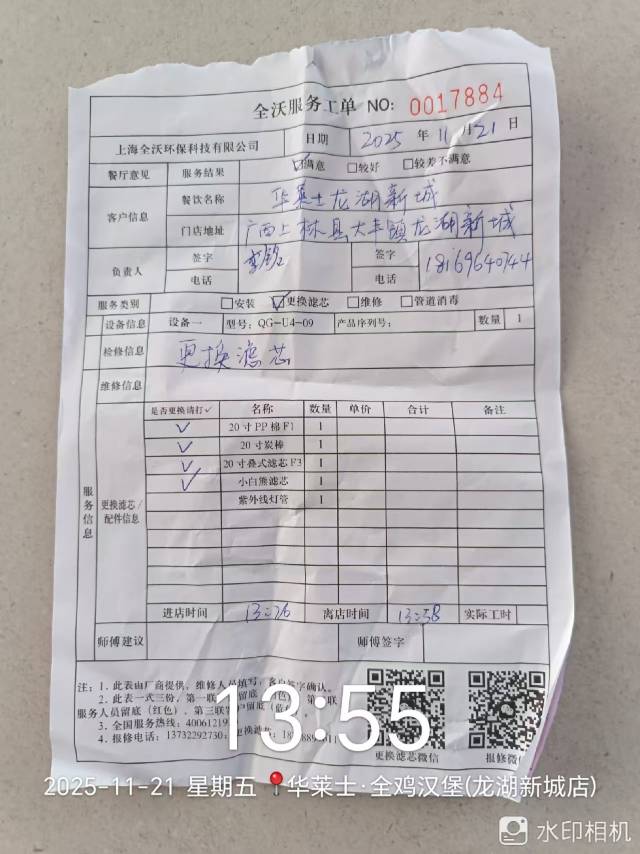 全沃服务工单 NO: 0017884
上海全沃环保科技有限公司 日期 2025 年 11 月 21 日
餐厅意见 服务结果 ☑满意 □较好 □较差不满意
客户信息 餐饮名称 华莱士龙湖新城
门店地址 广西上林县大丰镇龙湖新城
负责人 签字 签字
电话 电话 18169640744
服务类别 □安装 ☑更换滤芯 □维修 □管道消毒
设备信息 设备一 型号: QG-U4-09 产品序列号: 数量 1
检修信息 更换滤芯
维修信息
服务信息 更换滤芯/配件信息
是否更换请打✓ 名称 数量 单价 合计 备注
✓ 20寸PP棉F1 1
✓ 20寸炭棒 1
✓ 20寸叠式滤芯F3 1
✓ 小白熊滤芯 1
紫外线灯管 1
进店时间 13:26 离店时间 13:58 实际工时
师傅建议 师傅签字
注: 1. 此表由厂商提供, 维修人员填写, 客户签字确认。
2. 此表一式三份, 第一联 留底
服务人员留底 (红色), 第三联客户留底
3. 全国服务热线: 4006121
4. 报修电话: 13732292730
更换滤芯微信 报修微信
13:55
2025-11-21 星期五 华莱士·全鸡汉堡(龙湖新城店)
水印相机